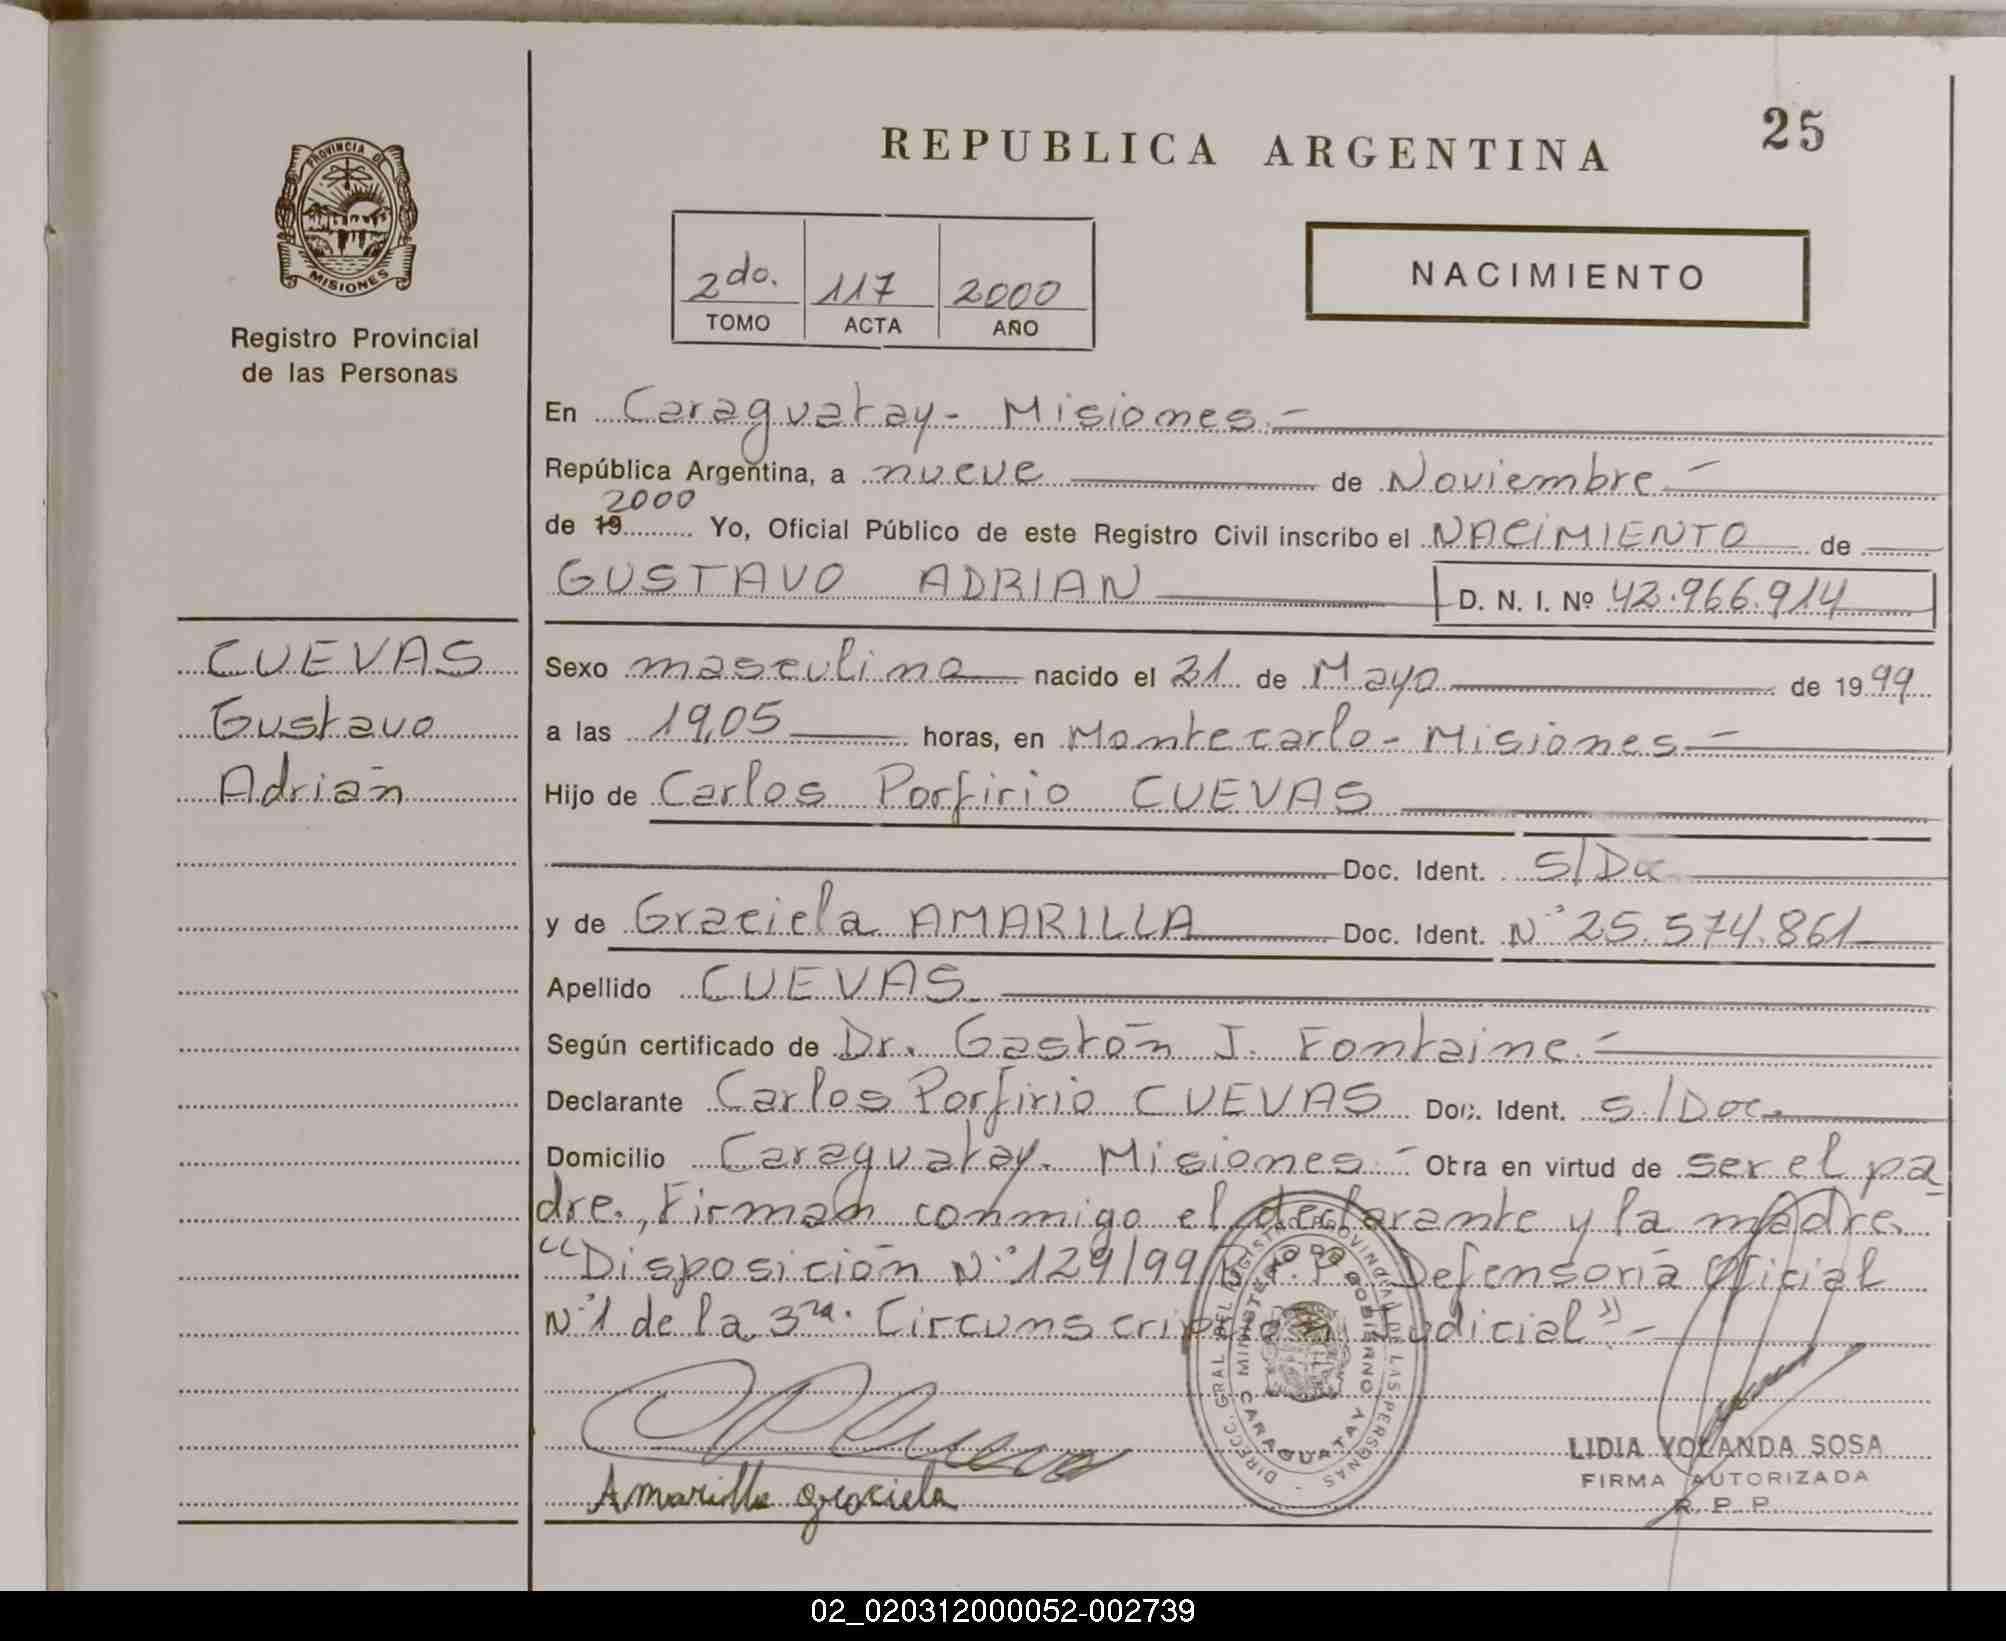 25
REPUBLICA ARGENTINA
PROVINCIA DE
MISIONES
Registro Provincial
de las Personas
2do. 117 2000
TOMO ACTA AÑO
NACIMIENTO
En Caraguatay - Misiones.-
República Argentina, a nueve de Noviembre -
2000
de 19 Yo, Oficial Público de este Registro Civil inscribo el NACIMIENTO de
GUSTAVO ADRIAN D. N. I. Nº 42.966.914
CUEVAS
Gustavo
Adrián
Sexo masculino nacido el 21 de Mayo de 1999
a las 19,05 horas, en Montecarlo - Misiones -
Hijo de Carlos Porfirio CUEVAS
Doc. Ident. S/Doc
y de Graciela AMARILLA Doc. Ident. Nº 25.574.861
Apellido CUEVAS
Según certificado de Dr. Gastón J. Fontaine.-
Declarante Carlos Porfirio CUEVAS Doc. Ident. S/Doc.
Domicilio Caraguatay. Misiones.- Obra en virtud de ser el pa
dre., Firman conmigo el declarante y la madre.
"Disposición Nº 129/99 Defensoría Oficial
Nº 1 de la 3ra. Circunscripción Judicial" -
DIRECC. GRAL DEL REGISTRO PROVINCIAL DE LAS PERSONAS
MINISTERIO DE GOBIERNO
CARAGUATAY
Amarilla graciela
LIDIA YOLANDA SOSA
FIRMA AUTORIZADA
R. P. P.
02_020312000052-002739